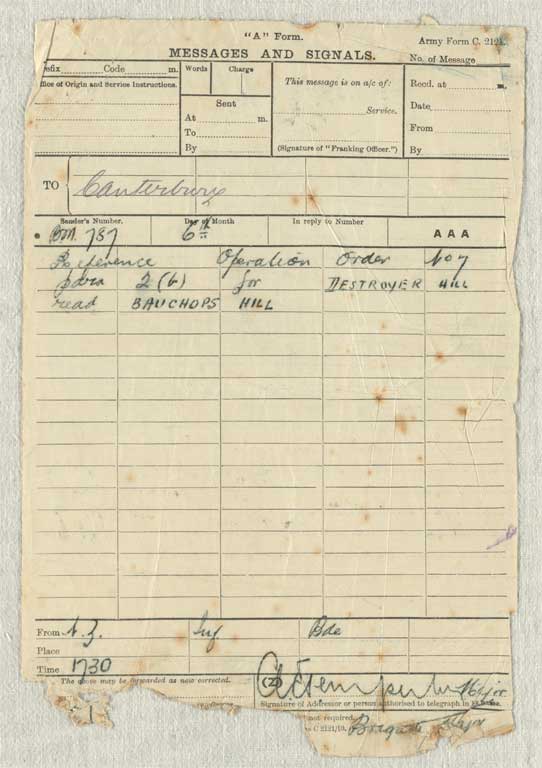 "A" Form.
Army Form C. 2121.
MESSAGES AND SIGNALS.
No. of Message
efix Code m.
ffice of Origin and Service Instructions.
Words Charge
Sent
At m.
To
By
This message is on a/c of:
Service.
(Signature of "Franking Officer.")
Recd. at m.
Date
From
By
TO Canterbury
Sender's Number. Day of Month In reply to Number
BM. 787 6th AAA
Reference Operation Order No 7
para 2 (b) for DESTROYER HILL
read BAUCHOPS HILL
From N.Z. Inf Bde
Place
Time 1730
The above may be forwarded as now corrected. (Z)
Major
Signature of Addressor or person authorised to telegraph in
not required.
s C 2121/10. Brigade Major